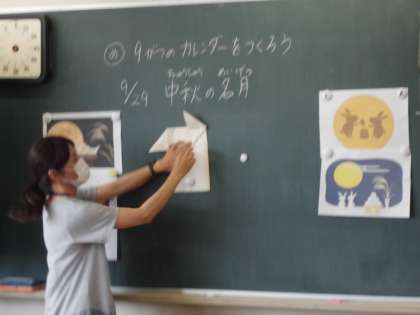 め 9がつのカレンダーをつくろう
ちゅうしゅう めいげつ
9/29 中秋の名月